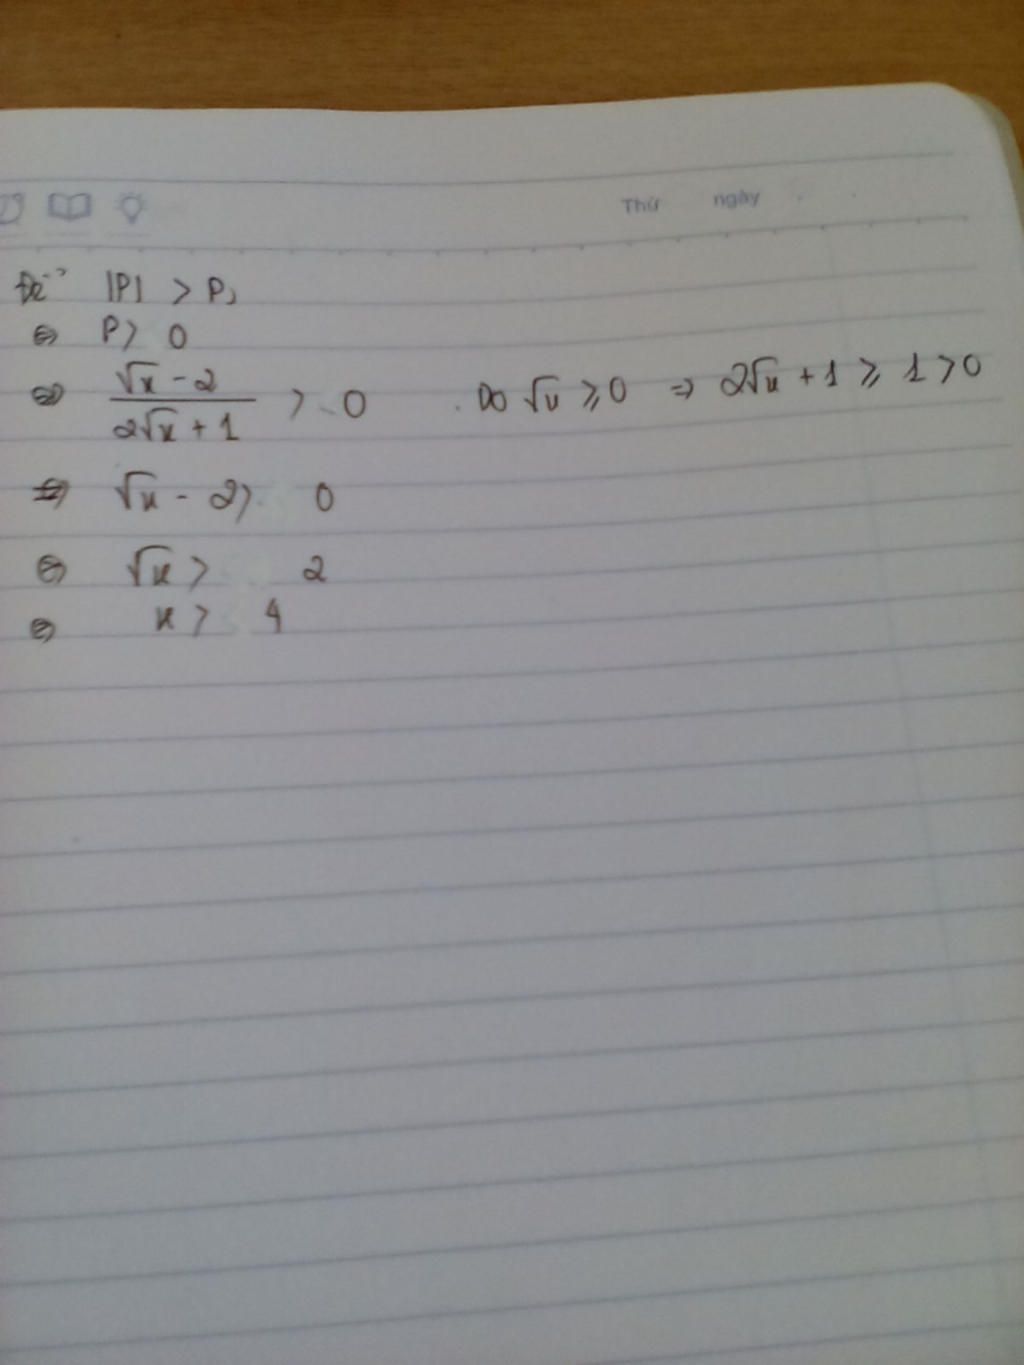 Thứ ngày
Để |P| > P,
⇔ P > 0
⇔ \frac{√x - 2}{2√x + 1} > 0 Do √x ≥ 0 ⇒ 2√x + 1 ≥ 1 > 0
⇔ √x - 2 > 0
⇔ √x > 2
⇔ x > 4